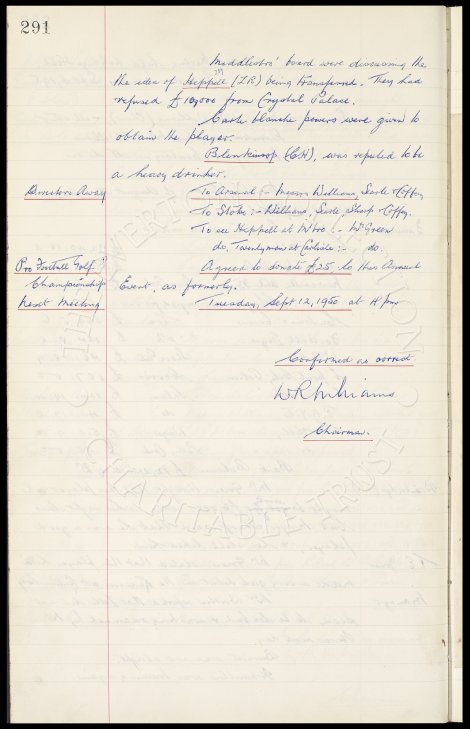 291
Middlesbro' board were discussing the
the idea of Heppell (I.R) being transferred. They had
refused £10,000 from Crystal Palace.
Carte blanche powers were given to
obtain the player.
Blenkinsop (CH), was reputed to be
a heavy drinker.
Directors Away To Arsenal :- Messrs Williams, Searle & Coffey
To Stoke :- Williams, Searle, Sharp & Coffey.
To see Heppell at M'bro :- Mr Green
do. Twentyman at Carlisle :- do.
Pro Football Golf Agreed to donate £25 to this Annual
Championship Event, as formerly.
Next Meeting Tuesday, Sept 12, 1950 at 4 pm
Confirmed as correct
W R Williams
Chairman.
THE EVERTON COLLECTION
CHARITABLE TRUST